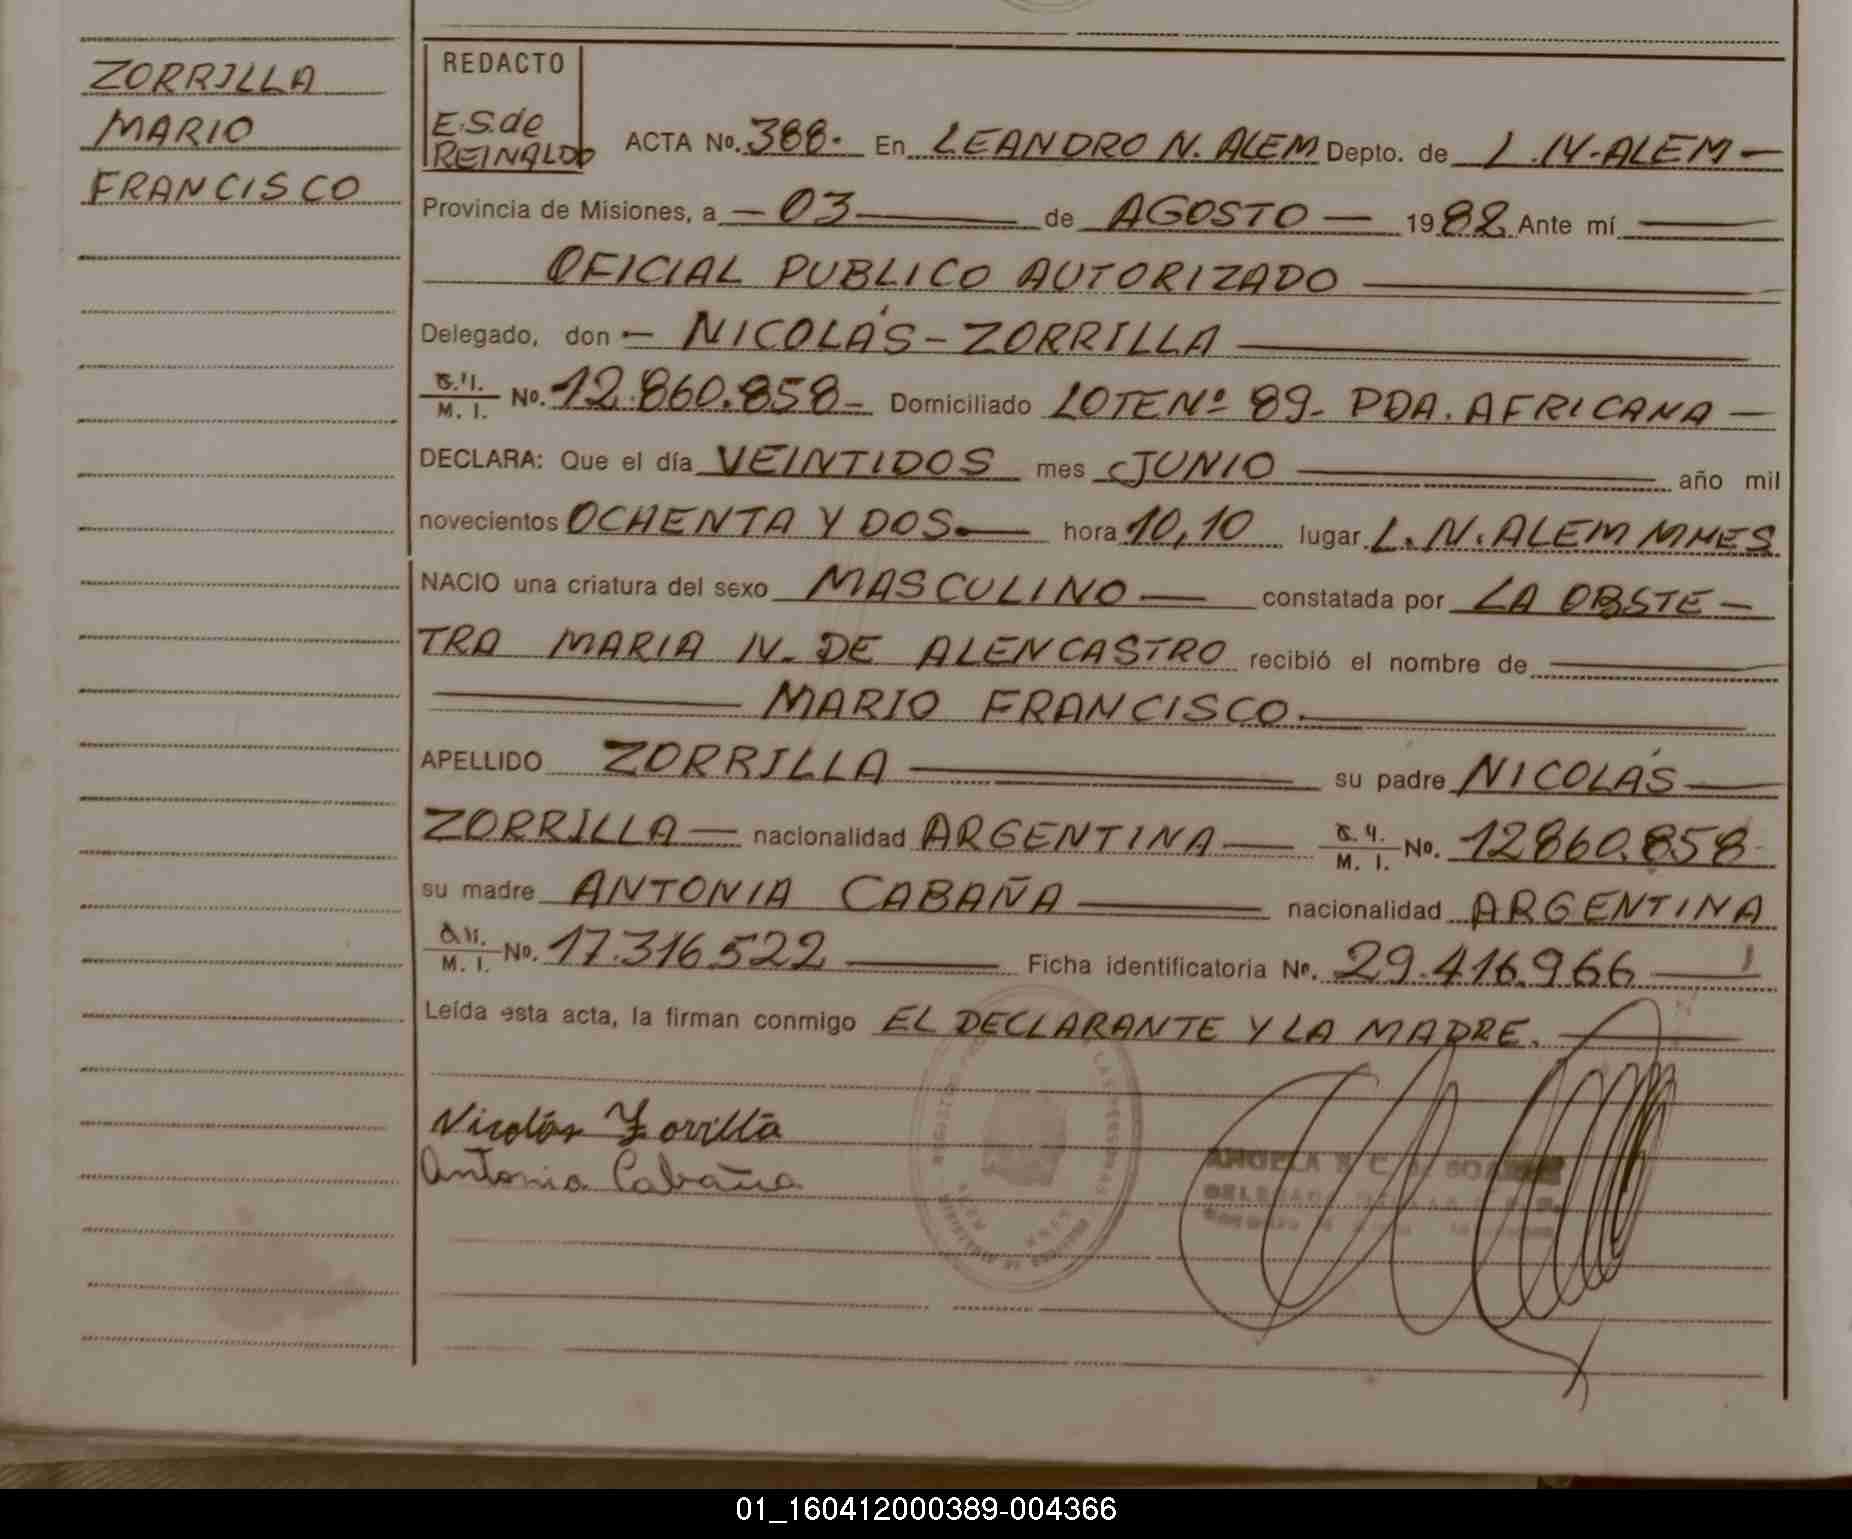 ZORRILLA
MARIO
FRANCISCO
REDACTO
E.S. de
REINALDO
ACTA No. 388.- En LEANDRO N. ALEM Depto. de L.N. ALEM —
Provincia de Misiones, a — 03 — de AGOSTO — 1982 Ante mí —
OFICIAL PUBLICO AUTORIZADO —
Delegado, don — NICOLÁS - ZORRILLA —
M. I. No. 12.860.858- Domiciliado LOTE Nº 89- PDA. AFRICANA —
DECLARA: Que el día VEINTIDOS mes JUNIO — año mil
novecientos OCHENTA Y DOS.— hora 10,10 lugar L. N. ALEM MNES
NACIO una criatura del sexo MASCULINO — constatada por LA OBSTE-
TRA MARIA N. DE ALENCASTRO recibió el nombre de —
— MARIO FRANCISCO. —
APELLIDO ZORRILLA — su padre NICOLÁS —
ZORRILLA — nacionalidad ARGENTINA — M. I. No. 12860.858-
su madre ANTONIA CABAÑA — nacionalidad ARGENTINA
M. I. No. 17.316.522 — Ficha identificatoria No. 29.416.966 —
Leída esta acta, la firman conmigo EL DECLARANTE Y LA MADRE. —
Nicolás Zorrilla
Antonia Cabaña
01_160412000389-004366